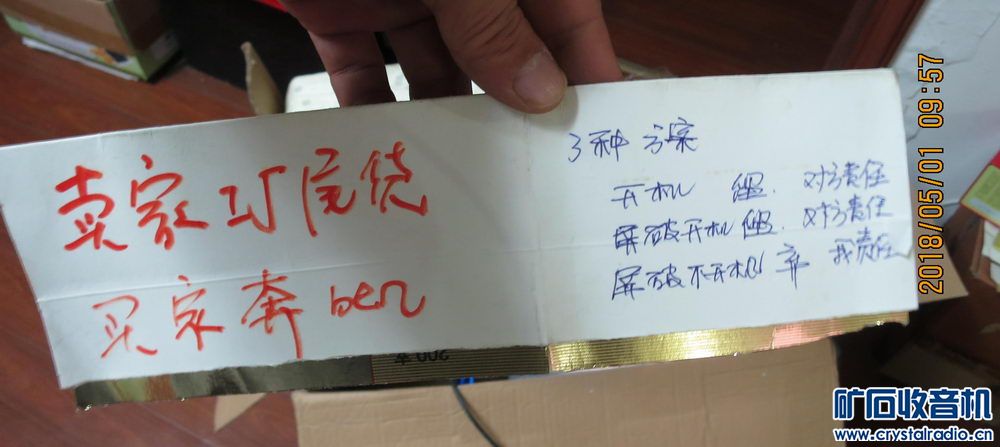 卖家
买家奔ben
3种方案
开机 留. 对方责任
屏破开机留. 对方责任
屏破不开机 弃 我责任
200
2018/05/01 09:57
矿石收音机
www.crystalradio.cn